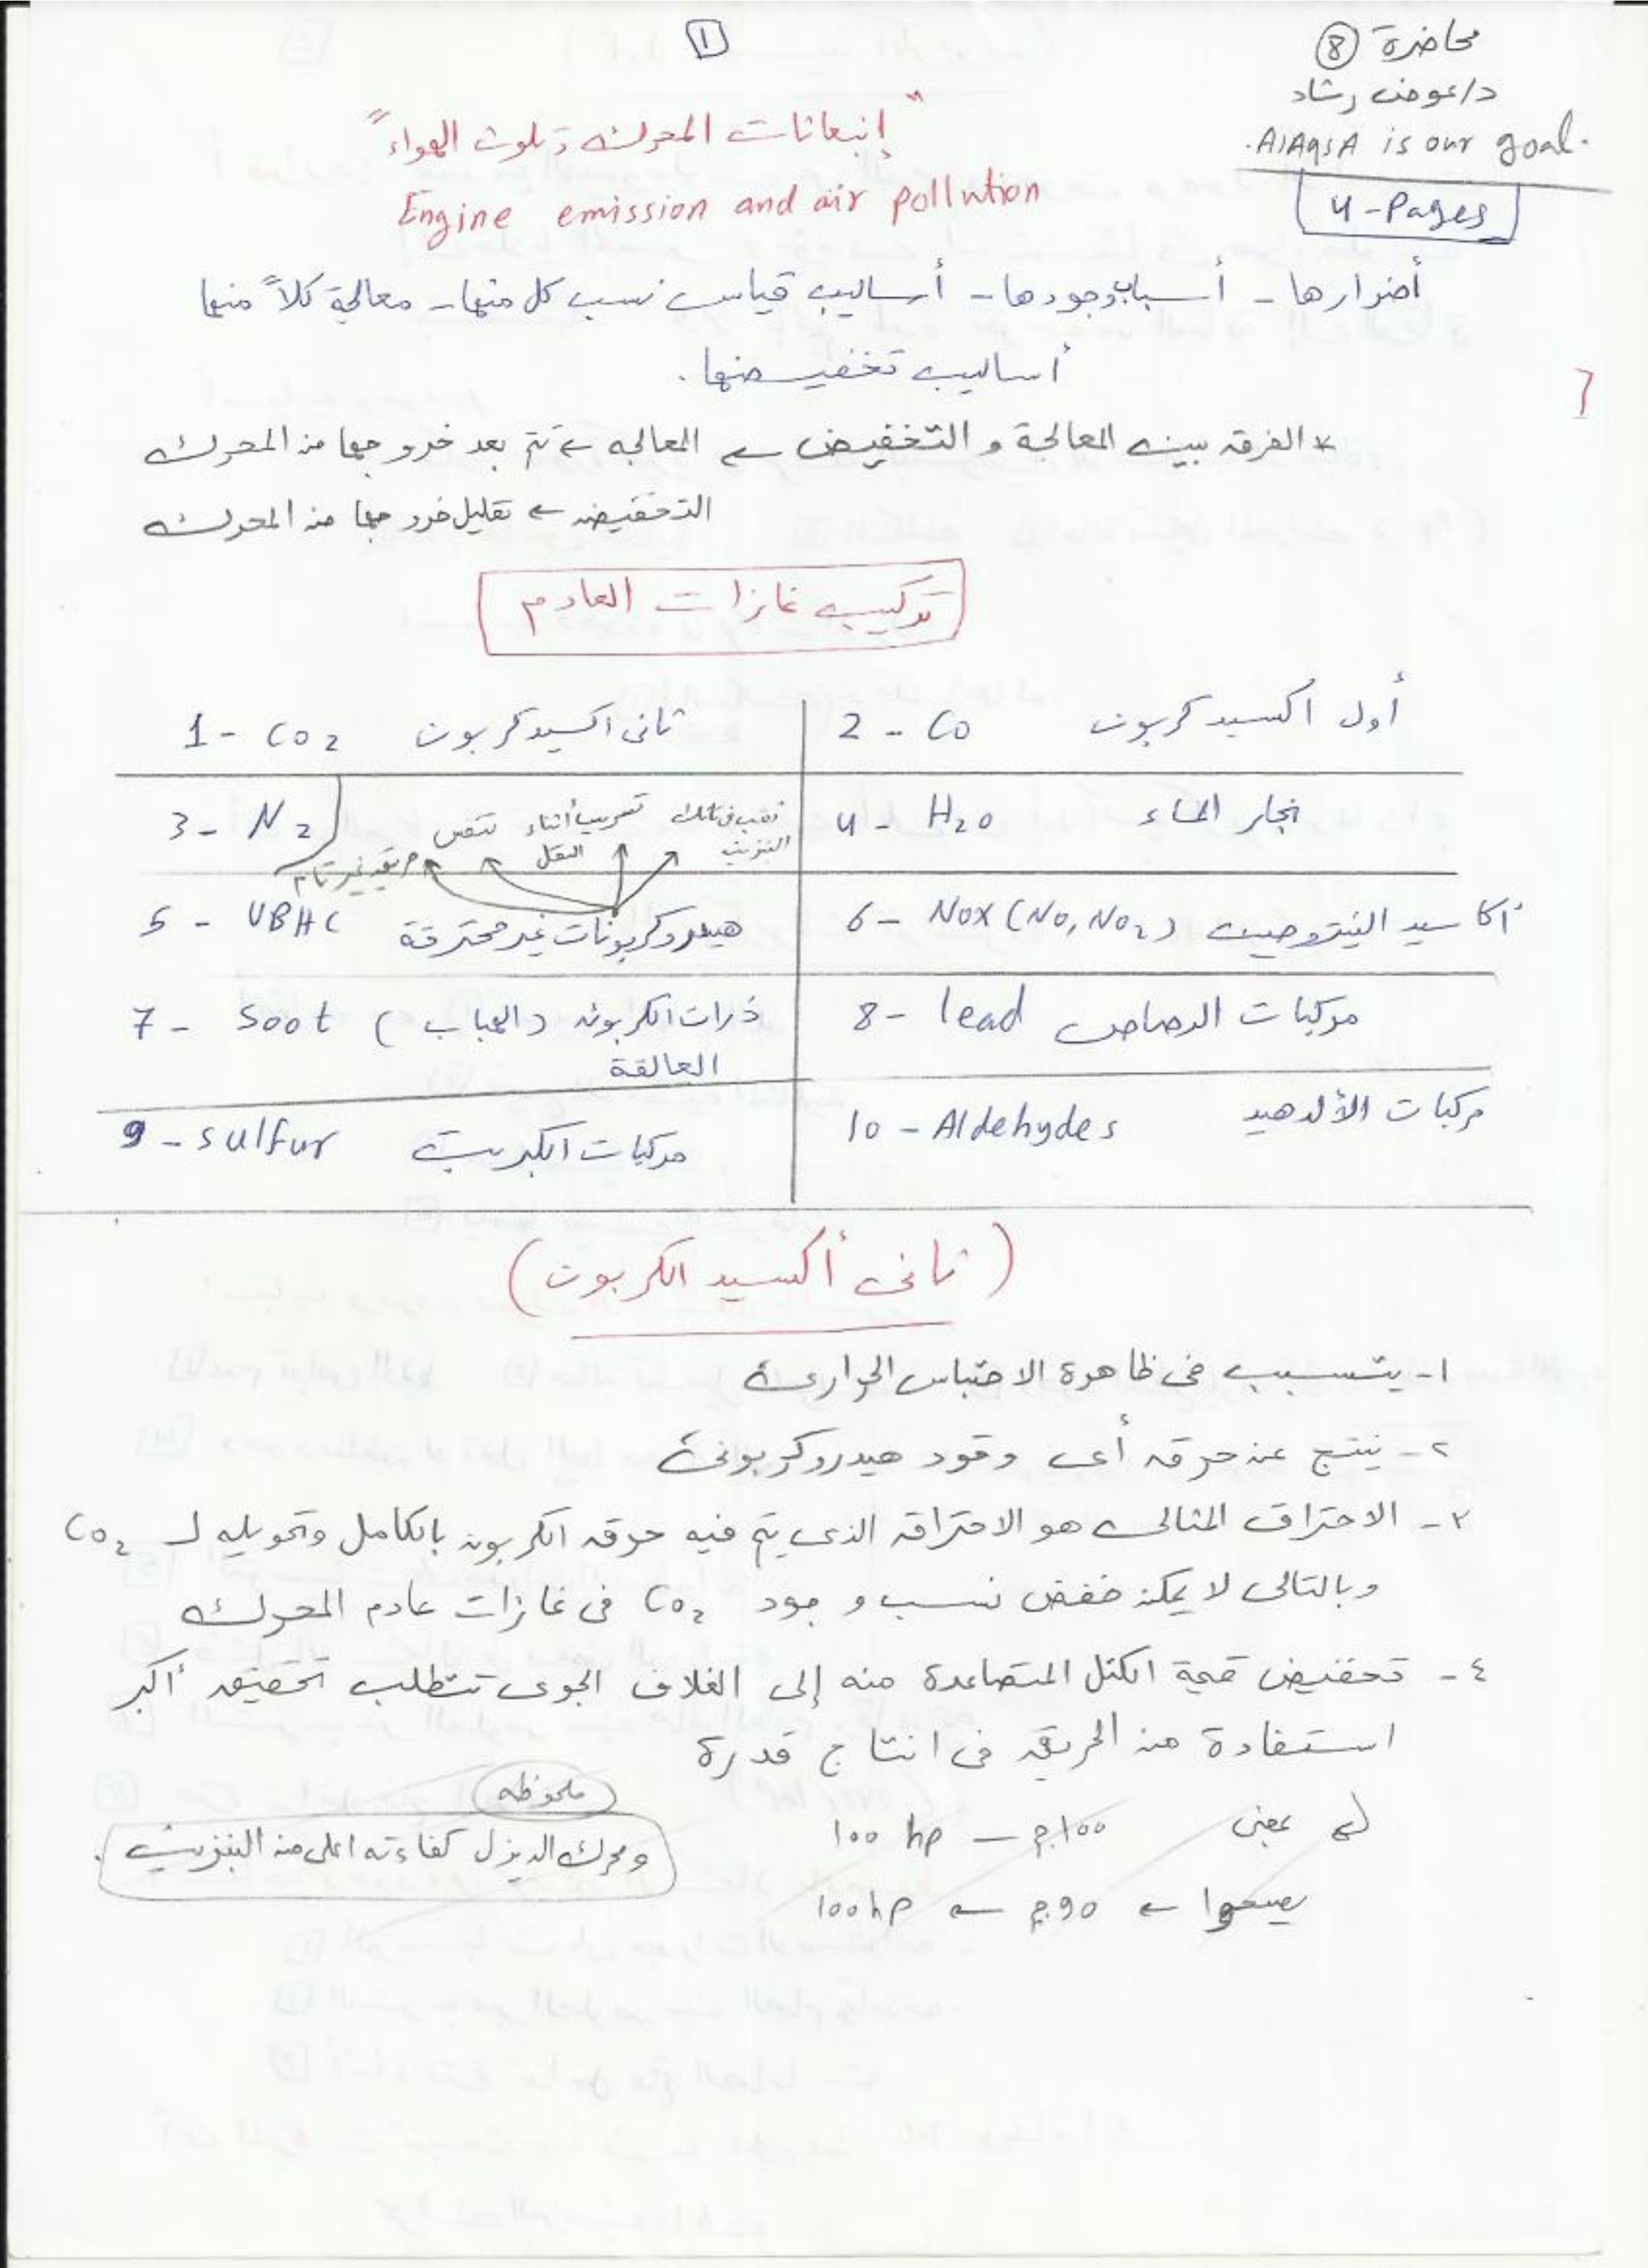 محاضرة 8
د/عوض رشاد
AlAqsA is our goal.
4-Pages
1
"إنبعاثات المحرك وتلوث الهواء"
Engine emission and air pollution
أضرارها - أسباب وجودها - أساليب قياس نسب كل منها - معالجة كلاً منها
أساليب تخفيضها.
* الفرق بين المعالجة و التخفيض ← المعالجه ← تتم بعد خروجها من المحرك
التخفيض ← تقليل خروجها من المحرك
تركيب غازات العادم
1 - CO2 ثانى اكسيد كربون
2 - CO أول اكسيد كربون
3 - N2
4 - H2O بخار الماء
ثقب فى تانك البنزين
تسريب أثناء النقل
تنفس
حريق غير تام
5 - UBHC هيدروكربونات غير محترقة
6 - NOx (NO, NO2) أكاسيد النيتروجين
7 - Soot ذرات الكربون (الهباب) العالقة
8 - lead مركبات الرصاص
9 - sulfur مركبات الكبريت
10 - Aldehydes مركبات الألدهيد
(ثانى أكسيد الكربون)
١- يتسبب فى ظاهرة الاحتباس الحرارى
٢- ينتج عن حرق أى وقود هيدروكربونى
٣- الاحتراق المثالى هو الاحتراق الذى يتم فيه حرق الكربون بالكامل وتحويله لـ CO2
وبالتالى لا يمكن خفض نسب وجود CO2 فى غازات عادم المحرك
٤- تخفيض قيمة الكتل المتصاعدة منه إلى الغلاف الجوى تتطلب تحقيق أكبر
استفادة من الحريق فى انتاج قدرة
بمعنى 100 ج — 100 hp
يصبحوا ← 90 ج ← 100 hp
ملحوظه
ومحرك الديزل كفاءته اعلى من البنزين.